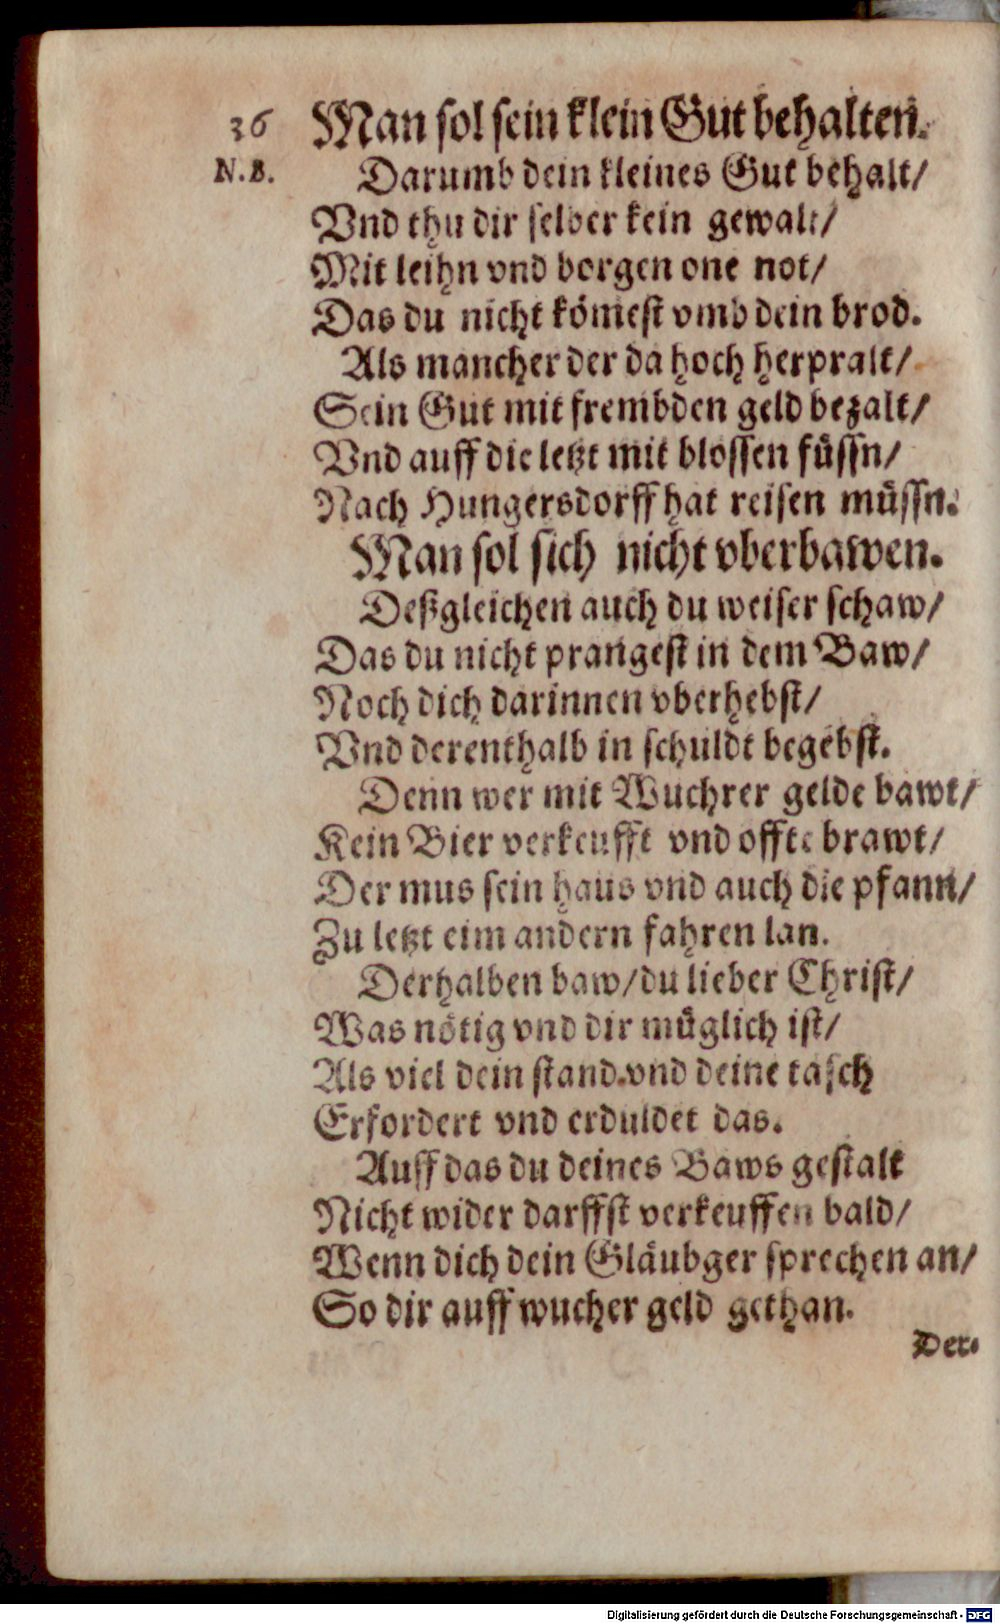 36 Man sol sein klein Gut behalten.
N.B. Darumb dein kleines Gut behalt/
Vnd thu dir selber kein gewalt/
Mit leihn vnd borgen one not/
Das du nicht kömest vmb dein brod.
Als mancher der da hoch herpralt/
Sein Gut mit frembden geld bezalt/
Vnd auff die letzt mit blossen füssn/
Nach Hungersdorff hat reisen müssn.
Man sol sich nicht vberbawen.
Deßgleichen auch du weiser schaw/
Das du nicht prangest in dem Baw/
Noch dich darinnen vberhebst/
Vnd derenthalb in schuldt begebst.
Denn wer mit Wuchrer gelde bawt/
Kein Bier verkeufft vnd offte brawt/
Der mus sein haus vnd auch die pfann/
Zu letzt eim andern fahren lan.
Derhalben baw/du lieber Christ/
Was nötig vnd dir müglich ist/
Als viel dein stand.vnd deine tasch
Erfordert vnd erduldet das.
Auff das du deines Baws gestalt
Nicht wider darffst verkeuffen bald/
Wenn dich dein Gläubger sprechen an/
So dir auff wucher geld gethan.
Der-
Digitalisierung gefördert durch die Deutsche Forschungsgemeinschaft - DFG